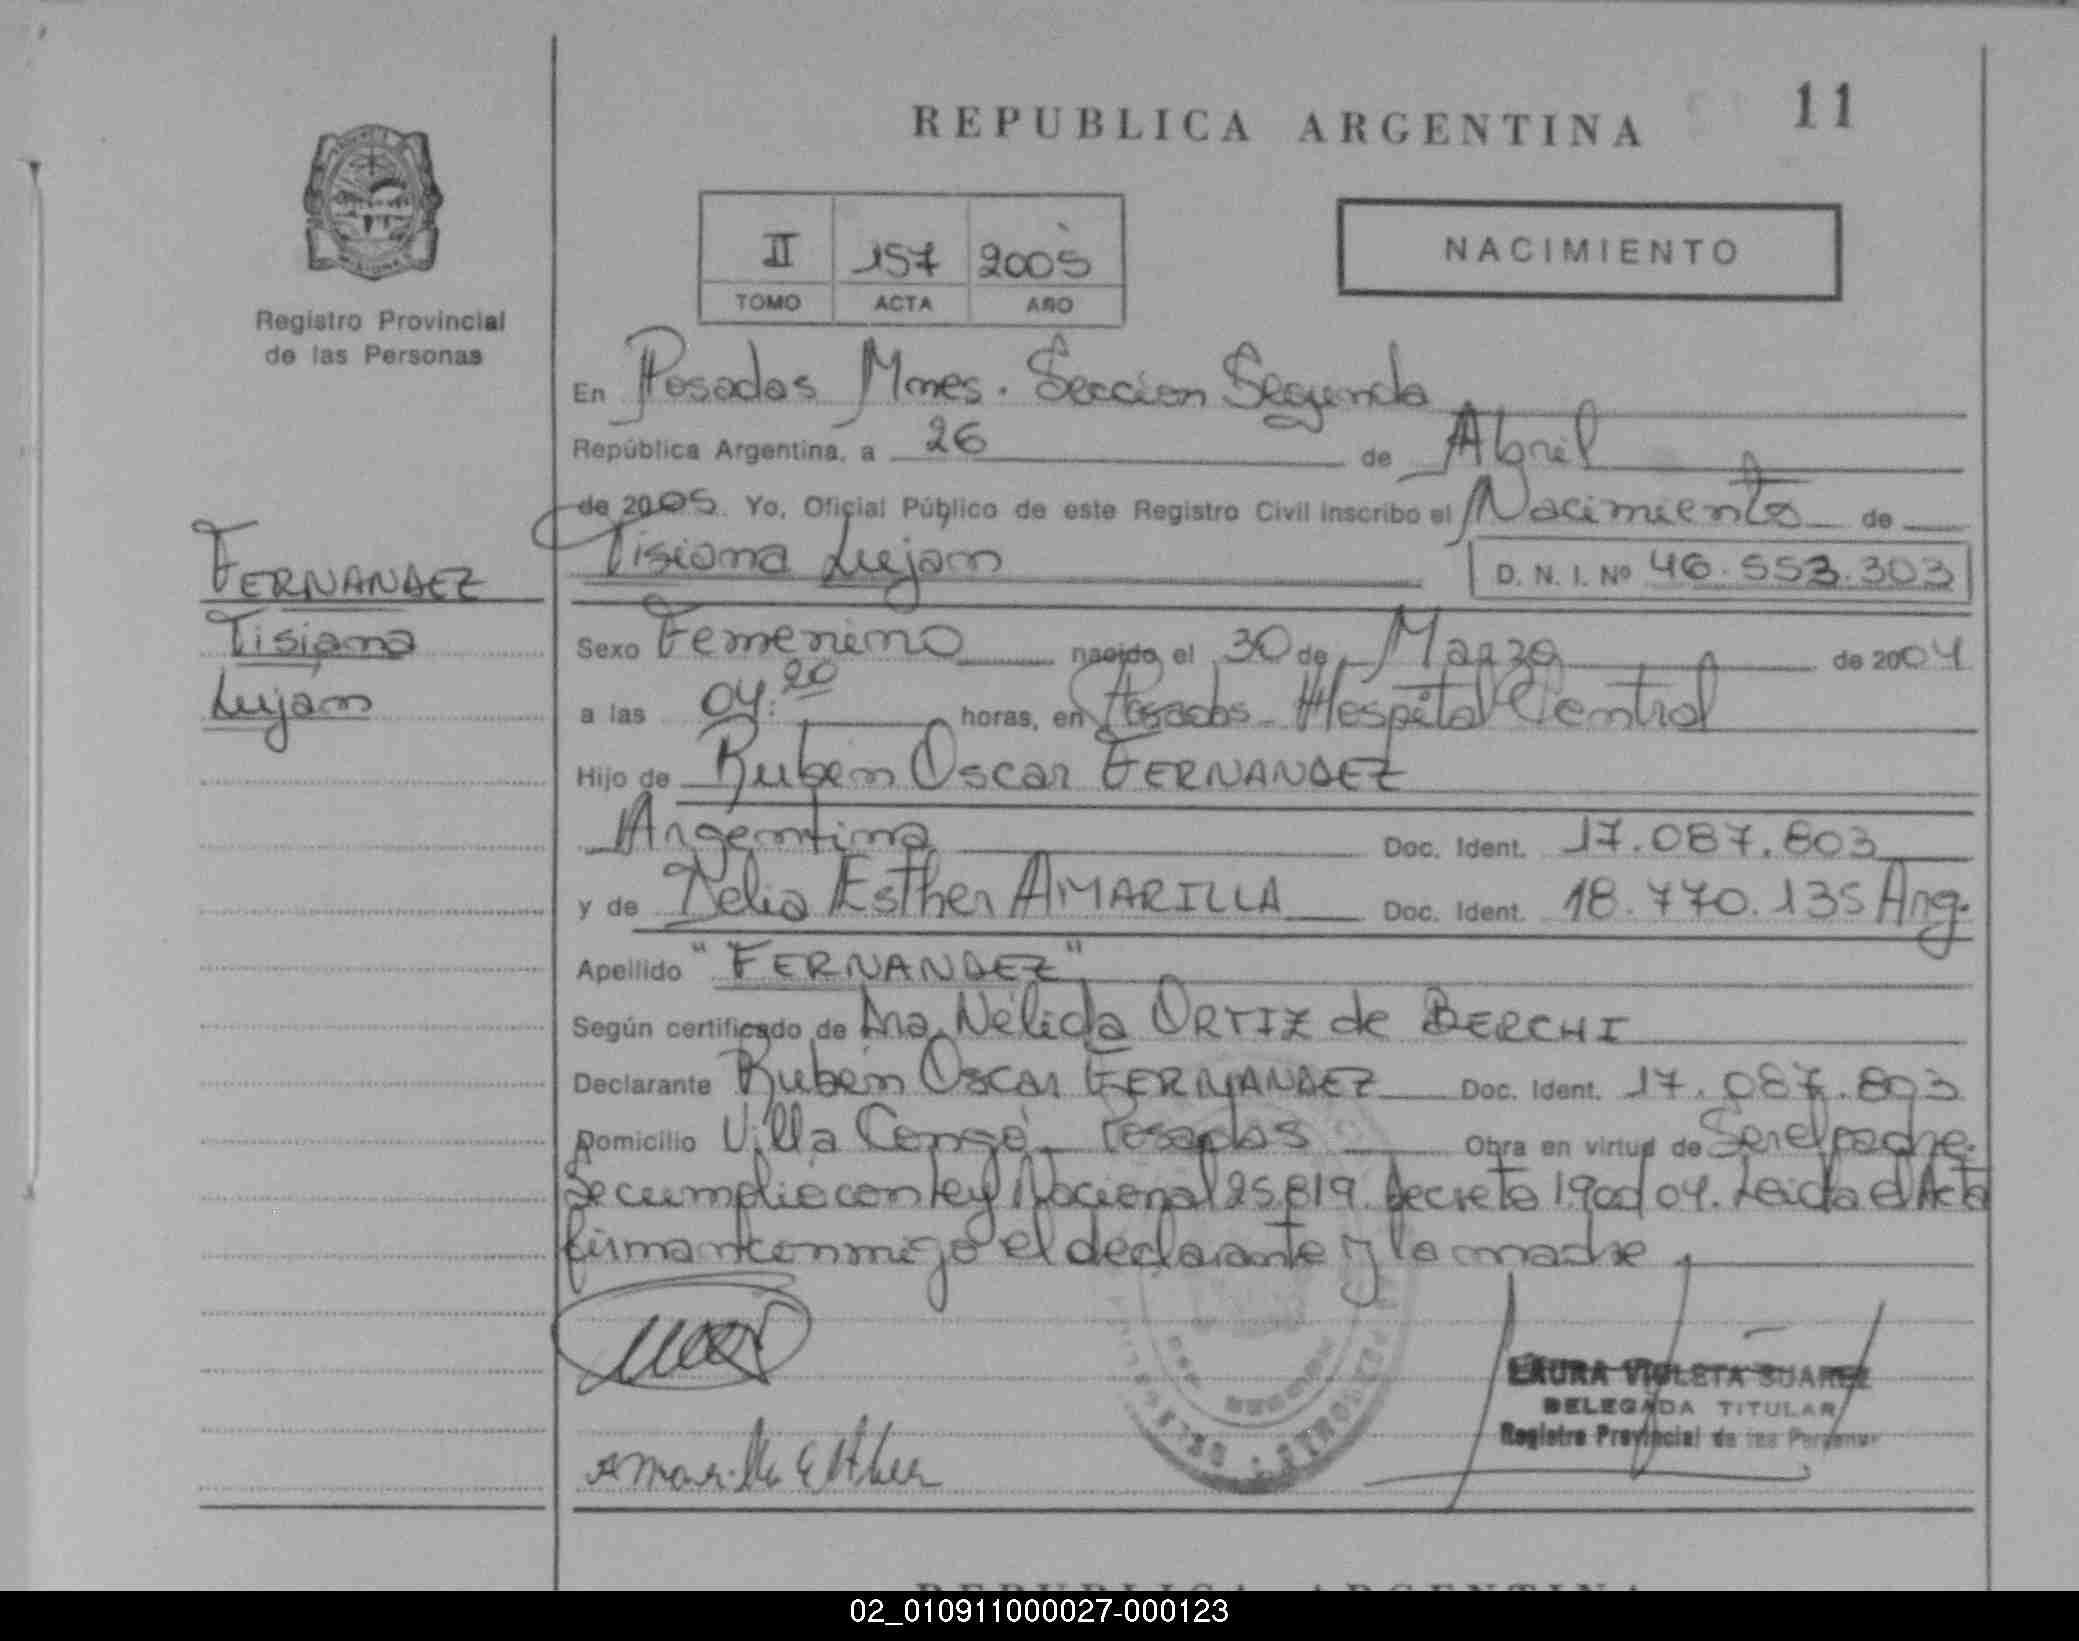 REPUBLICA ARGENTINA
11
II 157 2005
TOMO ACTA AÑO
NACIMIENTO
Registro Provincial
de las Personas
En Posadas Mnes. Sección Segunda
República Argentina, a 26 de Abril
de 2005. Yo, Oficial Público de este Registro Civil inscribo el Nacimiento de
Tisiana Lujan
D. N. I. Nº 46.553.303
FERNANDEZ
Tisiana
Lujan
Sexo Femenino nacido el 30 de Marzo de 2004
a las 04:20 horas, en Posadas Hospital Central
Hijo de Ruben Oscar FERNANDEZ
Argentina Doc. Ident. 17.087.803
y de Delia Esther AMARILLA Doc. Ident. 18.770.135 Arg.
Apellido "FERNANDEZ"
Según certificado de Ana Nélida ORTIZ de BERCHI
Declarante Rubén Oscar FERNANDEZ Doc. Ident. 17.087.803
Domicilio Villa Posadas Obra en virtud de Ser el padre.
Se cumplio con Ley Nacional 25.819. Decreto 04. Leida el Acta
firman conmigo el declarante y la madre
Amarilla Esther
LAURA VIOLETA SUAREZ
DELEGADA TITULAR
Registro Provincial de las Personas
REPUBLICA ARGENTINA
02_010911000027-000123